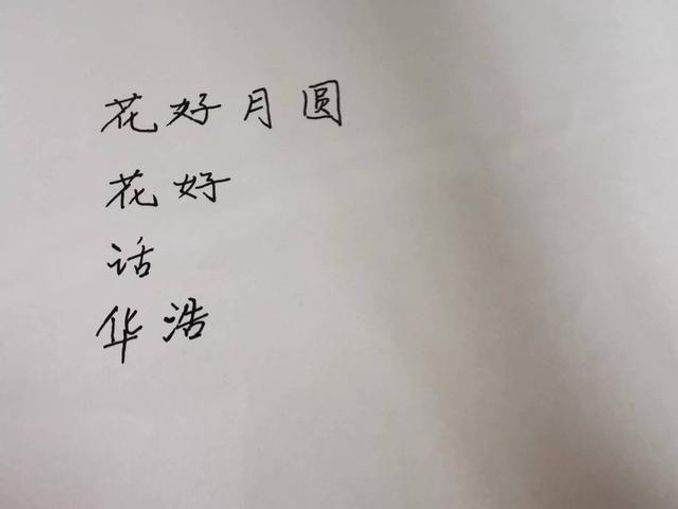 花好月圆
花好
话
华浩